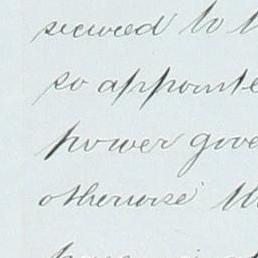 secured to
so appointe
power gove
otherwise th